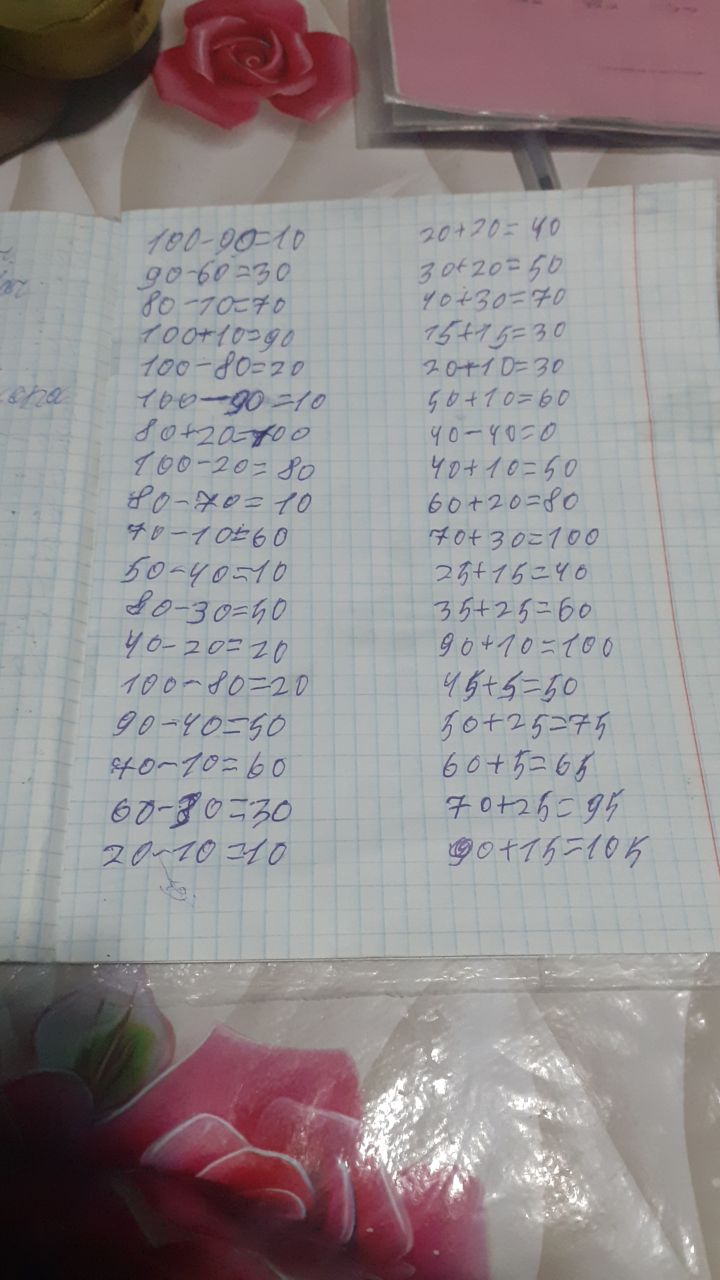 100-90=10
90-60=30
80-10=70
100+10=90
100-80=20
100-90=10
80+20=100
100-20=80
80-70=10
70-10=60
50-40=10
80-30=50
40-20=20
100-80=20
90-40=50
70-10=60
60-30=30
20-10=10
20+20=40
30+20=50
40+30=70
15+15=30
20+10=30
50+10=60
40-40=0
40+10=50
60+20=80
70+30=100
25+15=40
35+25=60
90+10=100
45+5=50
50+25=75
60+5=65
70+25=95
90+15=105